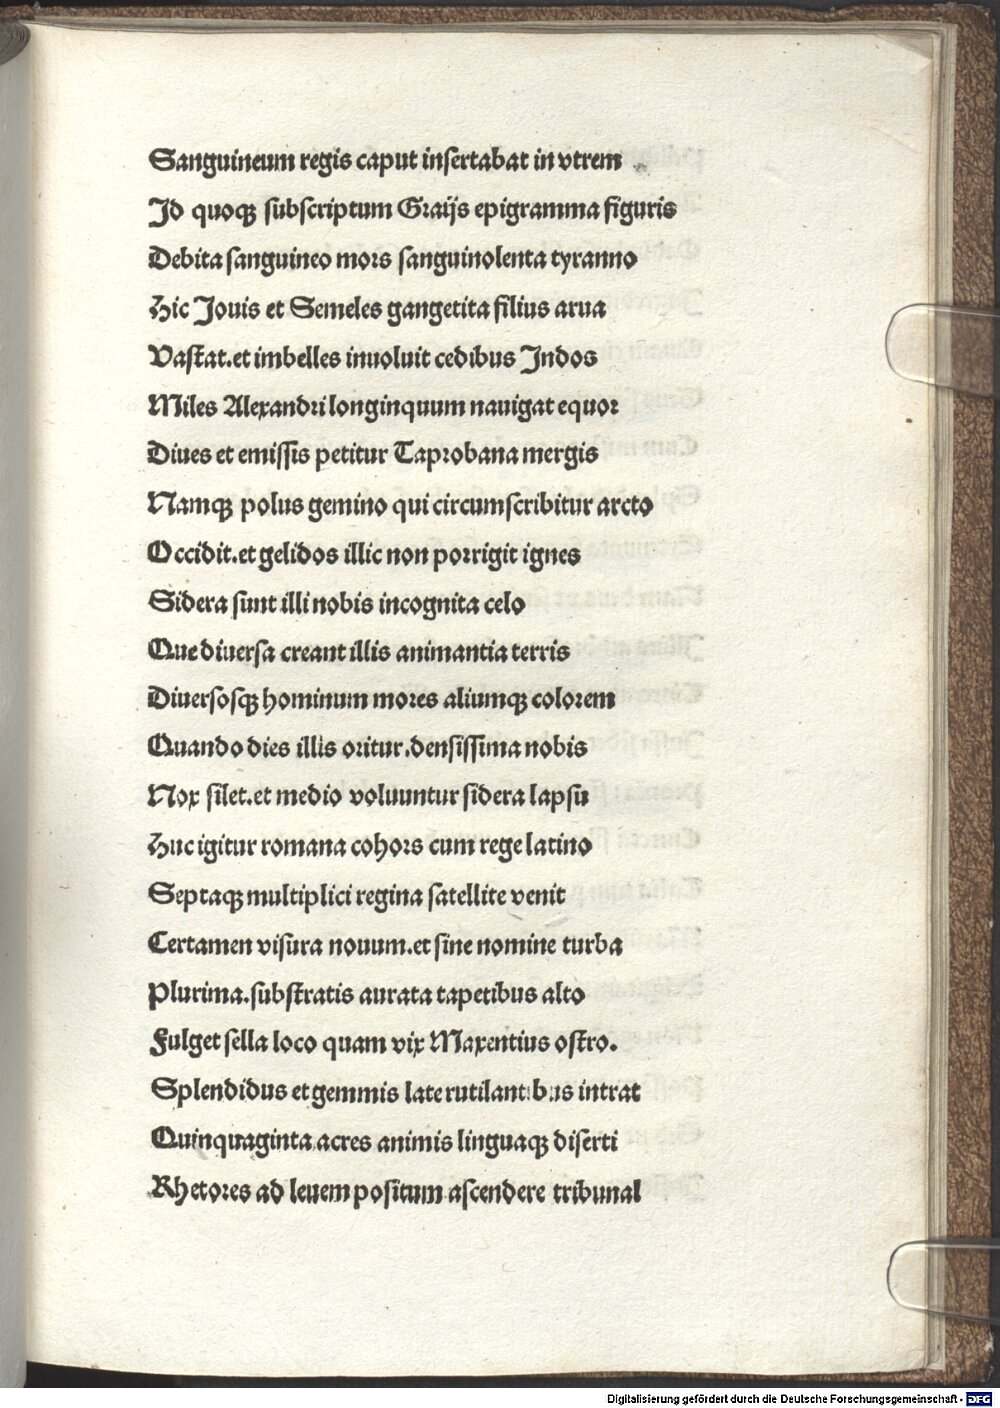 Sanguineum regis caput insertabat in vtrem
Id quoqꝫ subscriptum Graijs epigramma figuris
Debita sanguineo mors sanguinolenta tyranno
Hic Iouis et Semeles gangetita filius arua
Vastat.et imbelles inuoluit cedibus Indos
Miles Alexandri longinquum nauigat equor
Diues et emissis petitur Taprobana mergis
Namqꝫ polus gemino qui circumscribitur arcto
Occidit.et gelidos illic non porrigit ignes
Sidera sunt illi nobis incognita celo
Que diuersa creant illis animantia terris
Diuersosqꝫ hominum mores aliumqꝫ colorem
Quando dies illis oritur.densissima nobis
Nox silet.et medio voluuntur sidera lapsu
Huc igitur romana cohors cum rege latino
Septaqꝫ multiplici regina satellite venit
Certamen visura nouum.et sine nomine turba
Plurima.substratis aurata tapetibus alto
Fulget sella loco quam vix Maxentius ostro.
Splendidus et gemmis late rutilantibus intrat
Quinquaginta acres animis linguaqꝫ diserti
Rhetores ad leuem positum ascendere tribunal
Digitalisierung gefördert durch die Deutsche Forschungsgemeinschaft - DFG